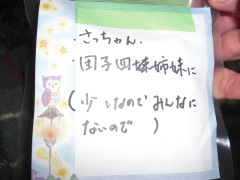 ・さっちゃん.
・団子四姉妹に
(少しなのでみんなに
ないので )